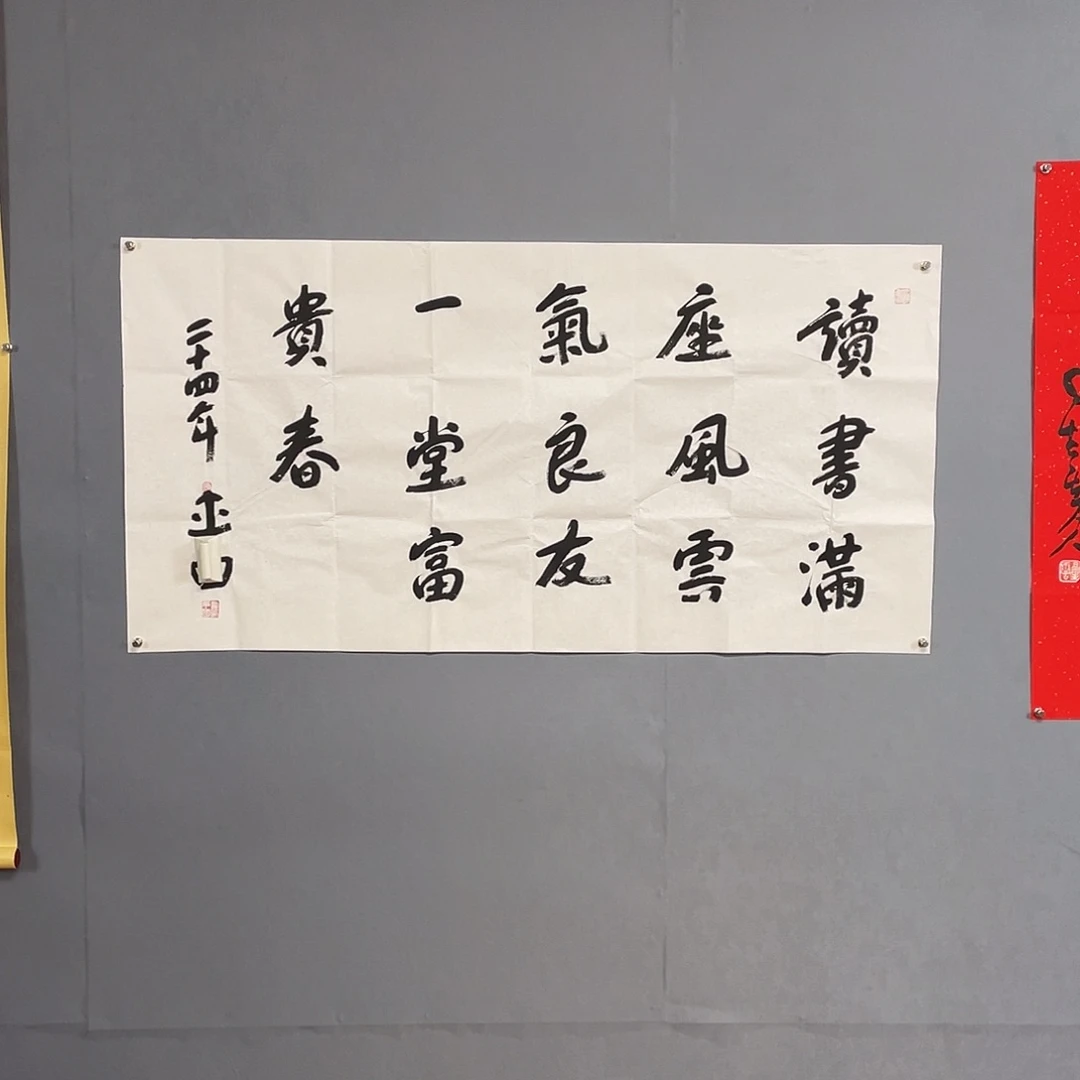 讀書滿
座風雲
氣良友
一堂富
貴春
二十四年